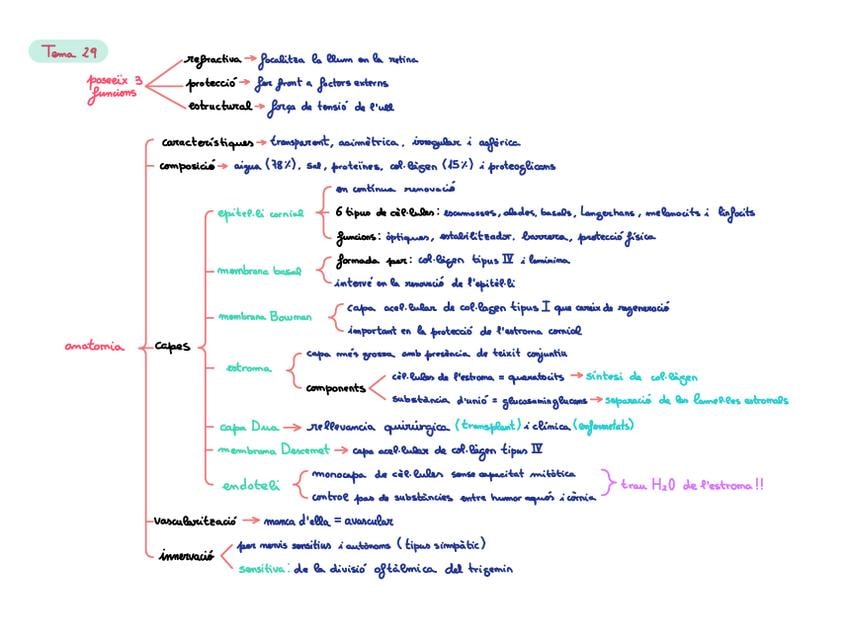 Tema 29
poseeix 3
funcions
refractiva → focalitza la llum en la retina
protecció → fer front a factors externs
estructural → força de tensió de l'ull
característiques → transparent, asimètrica, irregular i asfèrica
composició → aigua (78%), sal, proteïnes, col·làgen (15%) i proteoglicans
anatomia
capes
epitel·li cornial
en contínua renovació
6 tipus de cèl·lules: escamosses, alades, basals, Langerhans, melanocits i linfocits
funcions: òptiques, estabilitzador, barrera, protecció física
membrana basal
formada per: col·làgen tipus IV i laminina
intervé en la renovació de l'epitèl·li
membrana Bowman
capa acel·lular de col·lagen tipus I que careix de regeneració
important en la protecció de l'estroma cornial
estroma
capa més grossa amb presència de teixit conjuntiu
components
cèl·lules de l'estroma = queratocits → síntesi de col·làgen
substància d'unió = glucosaminglucans → separació de les lamel·les estromals
capa Dua → rellevancia quirúrgica (transplant) i clínica (enfermetats)
membrana Descemet → capa acel·lular de col·làgen tipus IV
endoteli
monocapa de cèl·lules sense capacitat mitòtica
control pas de substàncies entre humor aquós i còrnia
trau H2O de l'estroma!!
vascularització → manca d'ella = avascular
innervació
per nervis sensitius i autònoms (tipus simpàtic)
sensitiva: de la divisió oftàlmica del trigemin